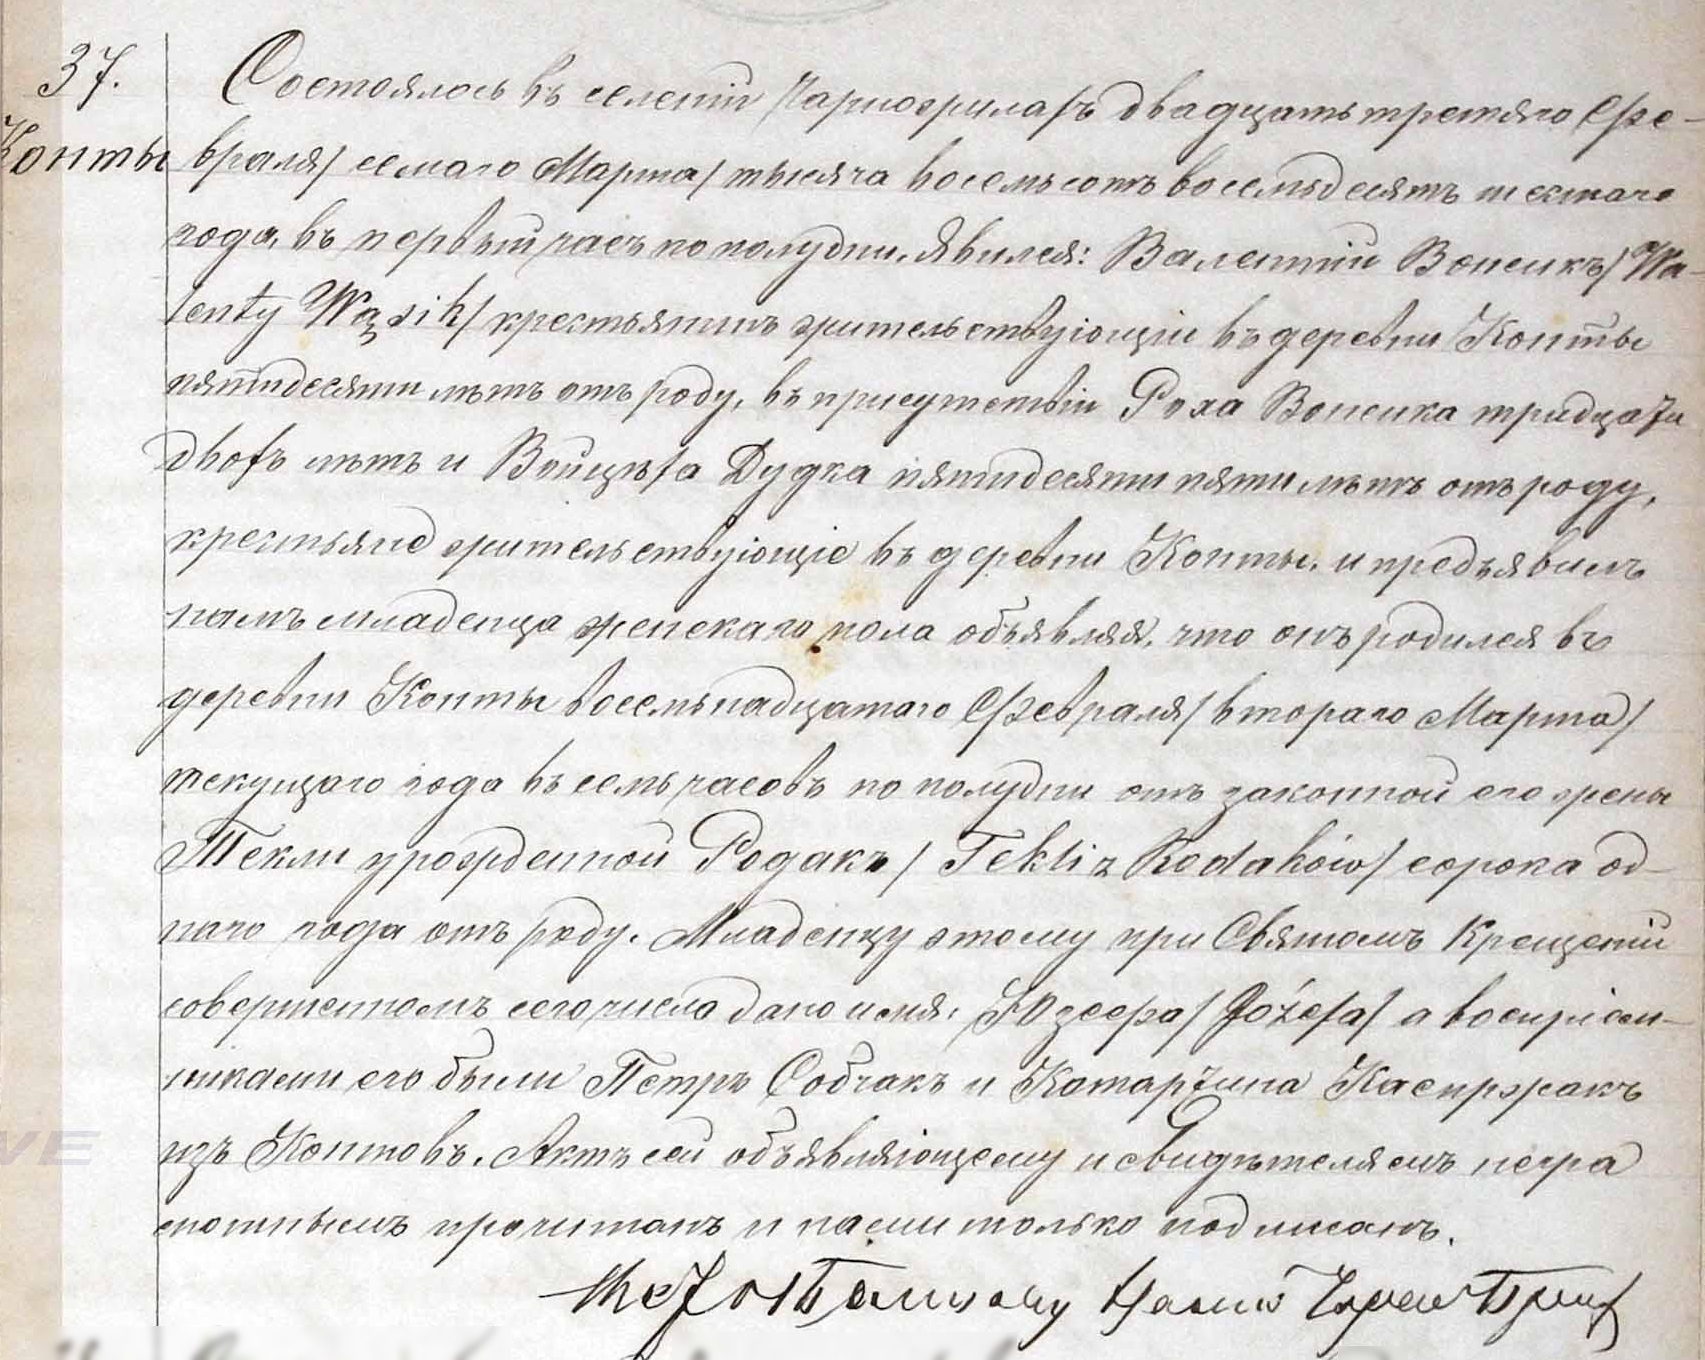 37.
Конты
Состоялось въ селеніи Чарножилахъ двадцать третяго Фе-
враля/ седмаго Марта/ тысяча восемьсотъ восемьдесятъ шестаго
года, въ первый часъ по полудни. Явился: Валентій Вонсикъ/ Wa-
lenty Wąsik/ крестьянинъ жительствующій въ деревни Конты
пятидесяти лѣтъ отъ роду, въ присутствіи Роха Вонсика тридцати
двохъ лѣтъ и Войцѣха Дудка пятидесяти пяти лѣтъ отъ роду,
крестьяне жительствующіе въ деревни Конты, и предъявилъ
намъ младенца женскаго пола объявляя, что онъ родился въ
деревни Конты восемьнадцатаго Февраля/ втораго Марта/
текущаго года въ семь часовъ по полудни отъ законной его жены
Текли урожденной Родакъ/ Tekli z Rodaków/ сорока од-
наго года отъ роду. Младенцу этому при Святомъ Крещеніи
совершенномъ сего числа дано имя, Юзефа/ Józefa/ а воспріем-
никами его были Петръ Собчакъ и Катаржина Каспржакъ
изъ Контовъ. Актъ сей объявляющему и свидѣтелямъ негра
мотнымъ прочитанъ и нами только подписанъ.